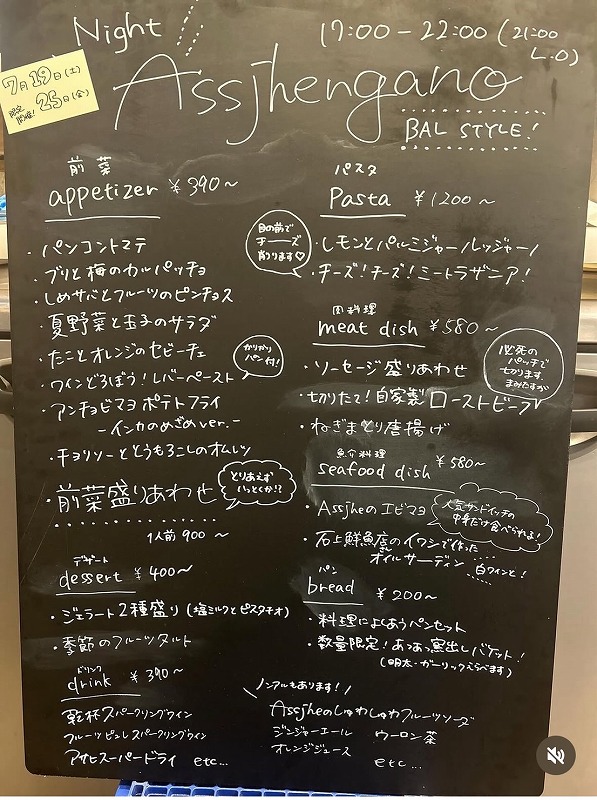 Night
17:00-22:00 (21:00 L.O)
7月19日(土)
25日(金)
限定開催!
Assjhengano
BAL STYLE!
前菜
appetizer ¥390~
・パンコントマテ
・ブリと梅のカルパッチョ
・しめサバとフルーツのピンチョス
・夏野菜と玉子のサラダ
・たことオレンジのセビーチェ
・ワインどろぼう!レバーペースト
かりかりパン付!
・アンチョビマヨポテトフライ
-インカのめざめver.-
・チョリソーととうもろこしのオムレツ
・前菜盛りあわせ
とりあえずいっとくか!?
1人前 900~
デザート
dessert ¥400~
・ジェラート2種盛り(塩ミルクとピスタチオ)
・季節のフルーツタルト
ドリンク
drink ¥390~
乾杯スパークリングワイン
フルーツピュレスパークリングワイン
アサヒスーパードライ etc...
パスタ
Pasta ¥1200~
目の前でチーズ削ります♡
・レモンとパルミジャーノレッジャーノ
・チーズ!チーズ!ミートラザニア!
肉料理
meat dish ¥580~
・ソーセージ盛りあわせ
必死のパッチで切ります
・切りたて!自家製ローストビーフ
・ねぎまとり唐揚げ
魚介料理
seafood dish ¥580~
・Assjheのエビマヨ
人気サンドイッチの中身だけ食べられるよ!
・石上鮮魚店のイワシで作った
オイルサーディン 白ワインと!
パン
bread ¥200~
・料理によくあうパンセット
・数量限定!あつあつ窯出しバゲット!
(明太・ガーリックえらべます)
ノンアルもあります!
Assjheのしゅわしゅわフルーツソーダ
ジンジャーエール ウーロン茶
オレンジジュース etc...